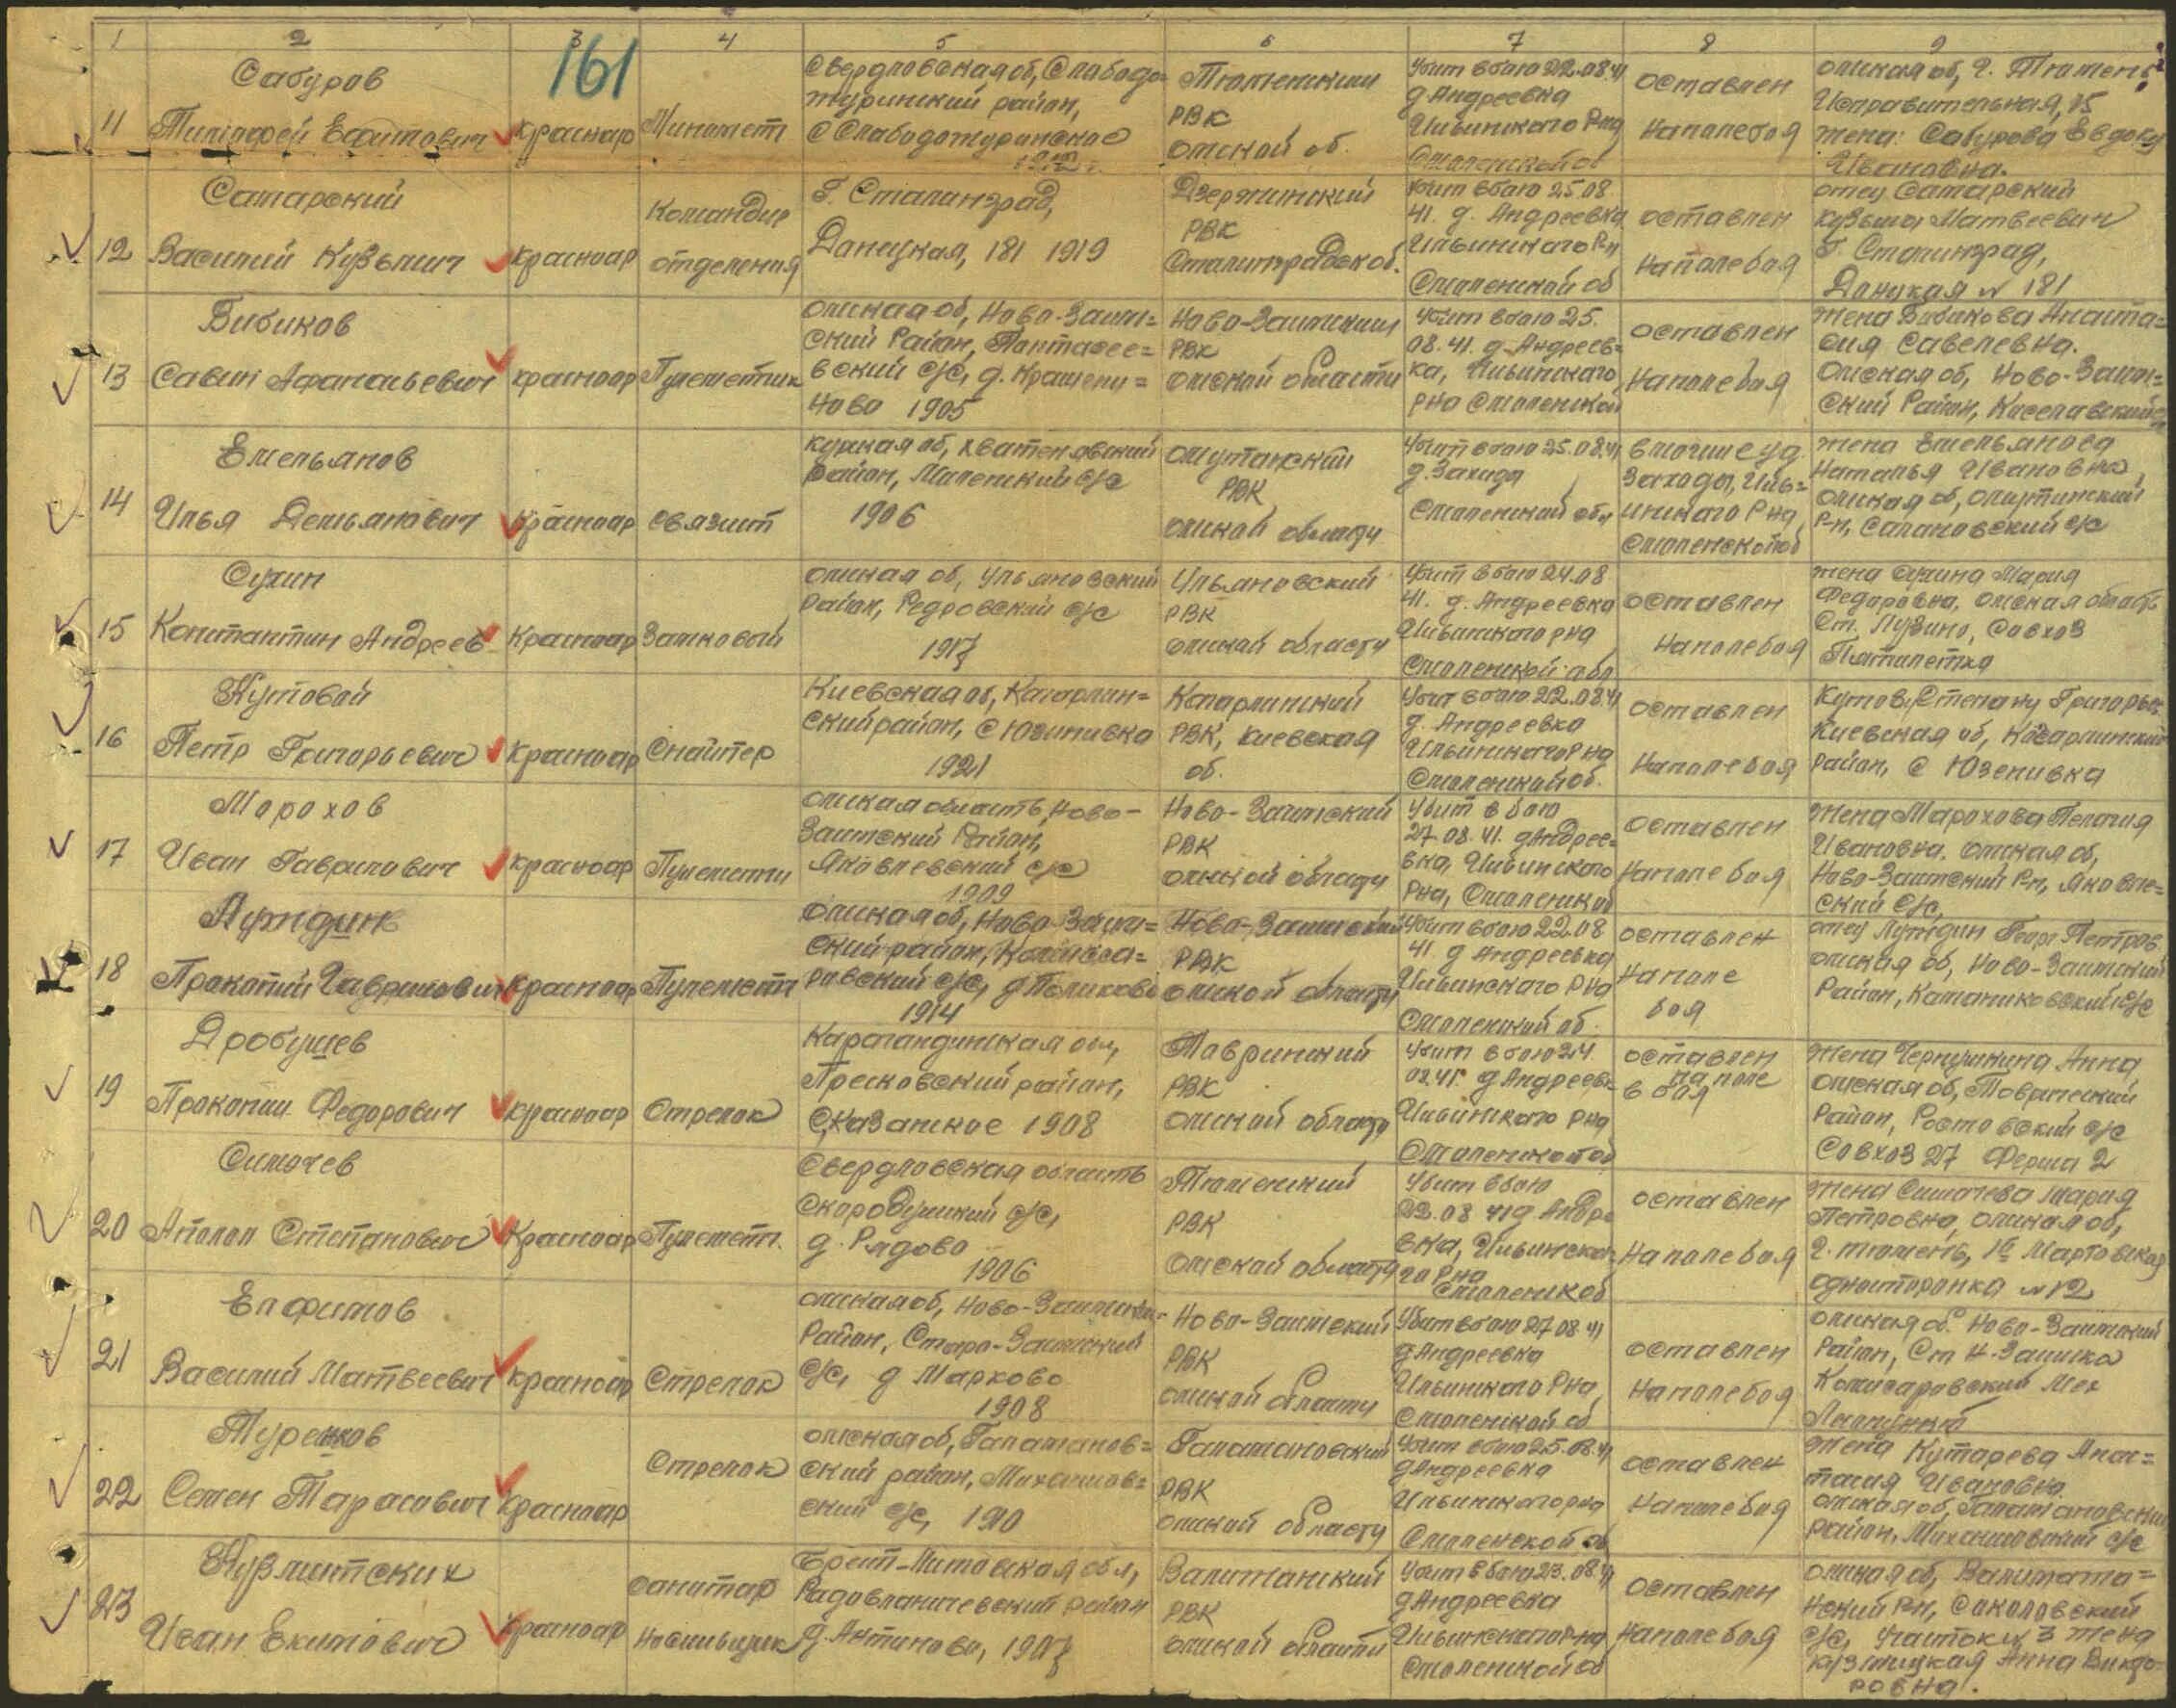 1 2 3 4 5 6 7 8 9
161
11
Сабуров
Тимофей Ефимович
Красноар
Миномет
Свердловская об, Слободо-
туринский район,
С Слободотуринское
Тюменский
РВК
Омской об.
Убит в бою 22.08.41
д Андреевка
Ильинского Рна
Смоленской об
оставлен
на поле боя
Омская об, г. Тюмень
Исправительная, 15
жена: Сабурова Евдок
Ивановна.
12
Самарский
Василий Кузьмич
Красноар
Командир
отделения
Г. Сталинград,
Даницкая, 181 1919
Дзержинский
РВК
Сталинградск об.
Убит в бою 25.08
41. д. Андреевка
Ильинского Рн
Смоленской об
оставлен
на поле боя
отец Самарский
Кузьма Матвеевич
Г. Сталинград,
Даницкая № 181
13
Бибиков
Савин Афанасьевич
Красноар
Пулеметчик
Омская об, Ново-Заим=
ский Район, Пантасее=
вский с/с, д. Крашени=
ново 1905
Ново-Заимский
РВК
Омской области
Убит в бою 25.
08.41. д. Андреев=
ка, Ильинского
Рна Смоленской
оставлен
на поле боя
жена Бибикова Анаста=
сия Савелевна.
Омская об, Ново-Заим=
ский Район, Киселавский
14
Емельянов
Илья Демьянович
Красноар
Связист
Курская об,
район, с/с
1906
Омутинский
РВК
Омской области
Убит в бою 25.08.41
д. Заходы
Смоленской обл
в могиле у д.
Заходы, Иль=
инского Рна,
Смоленской об
жена Емельянова
Наталья Ивановна,
Омская об, Омутинский
Р-н, с/с
15
Сухин
Константин Андреев
Красноар
Замковой
Омская об, Ульяновский
район, с/с
1917
Ульяновский
РВК
Омской области
Убит в бою 24.08
41. д. Андреевка
Ильинского рна
Смоленской обл
оставлен
на поле боя
жена Сухина Мария
Федоровна, Омская область
Ст. Лузино, Совхоз
Пятилетка
16
Кутовой
Петр Григорьевич
Красноар
Снайпер
Киевская об, Кагарлин=
ский район, С Юзинивка
1921
Кагарлинский
РВК, Киевская
об.
Убит в бою 22.08.41
д. Андреевка
Ильинского Рна
Смоленской об.
оставлен
на поле боя
Кутов. Степану Григорье
Киевская об, Кагарлинский
район, С Юзенивка
17
Морохов
Иван Гаврилович
Красноар
Пулеметчи
Омская область, Ново-
Заимский Район,
Яковлевский с/с
1909
Ново-Заимский
РВК
Омской области
Убит в бою
27.08.41. д Андрее=
вка, Ильинского
Рна, Смоленской
оставлен
на поле боя
Жена Марохова Пелагия
Ивановна. Омская об,
Ново-Заимский Р-н, Яковле=
ский с/с,
18
Лужидин
Прокопий Гаврилович
Красноар
Пулеметчи
Омская об, Ново-Заим=
ский район, Комисса=
ровский с/с, д Поликово
1914
Ново-Заимский
РВК
Омской области
Убит в бою 22.08
41. д Андреевка
Ильинского Рна
Смоленской об.
оставлен
на поле
боя
отец Георг Петров
Омская об, Ново-Заимский
Район, с/с
19
Дробушев
Прокопий Федорович
Красноар
Стрелок
Карагандинская обл,
Пресновский район,
С,Казанское 1908
Тавринский
РВК
Омской области
Убит в бою 24.
08.41. д Андреевк
Ильинского Рна
Смоленской об
оставлен
на поле
в боя
Жена Чернушкина Анна
Омская об, Таврический
Район, Ростовский с/с
Совхоз 27 Ферма 2
20
Симачев
Аполон Степанович
Красноар
Пулемет.
Свердловская область
Скородумский с/с,
д. Рядово
1906
Тюменский
РВК
Омской области
Убит в бою
22.08 41 д Андре
вка, Ильинско=
го Рна
Смоленск об
оставлен
на поле боя
Жена Симачева Мария
Петровна, Омская об,
г. Тюмень, 1я Мартовская
односторонка № 12
21
Епфимов
Василий Матвеевич
Красноар
Стрелок
Омская об, Ново-Заимский
Район, Старо-Заимский
с/с, д Марково
1908
Ново-Заимский
РВК
Омской области
Убит в бою 27 08 41
д Андреевка
Ильинского Рна,
Смоленской об
оставлен
на поле боя
Омская об. Ново-Заимский
Район, Ст Н. Заимка
Комисаровский Мех
22
Туренков
Семен Тарасович
Красноар
Стрелок
Омская об, Галаманов=
ский район, Михайлов=
ский с/с, 1910
Галамановский
РВК
Омской области
Убит в бою 25.08.41
д Андреевка
Ильинского рна
Смоленской об
оставлен
на поле боя
Жена Кутарева Анас=
тасия Ивановна.
Омская об, Галамановский
район, Михайловский с/с
23
Кузмитских
Иван Екимович
Красноар
Санитар
Носильщик
Брест-Литовская обл,
район
д. Антиново, 1907
РВК
Омской области
Убит в бою 23.08.41
д Андреевка
Ильинского Рна
Смоленской об
оставлен
на поле боя
Омская об,
нский Р-н, Соколовский
с/с, Участок № 3 жена
Кузмицкая Анна Викто=
ровна.